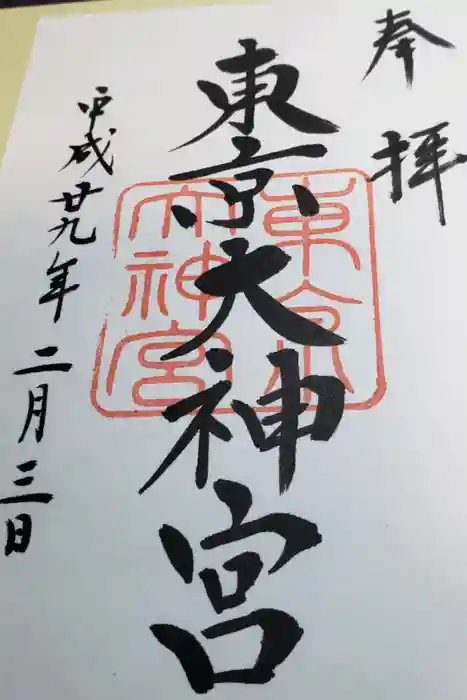 奉拝
東京大神宮
東京
大神宮
平成廿九年二月三日